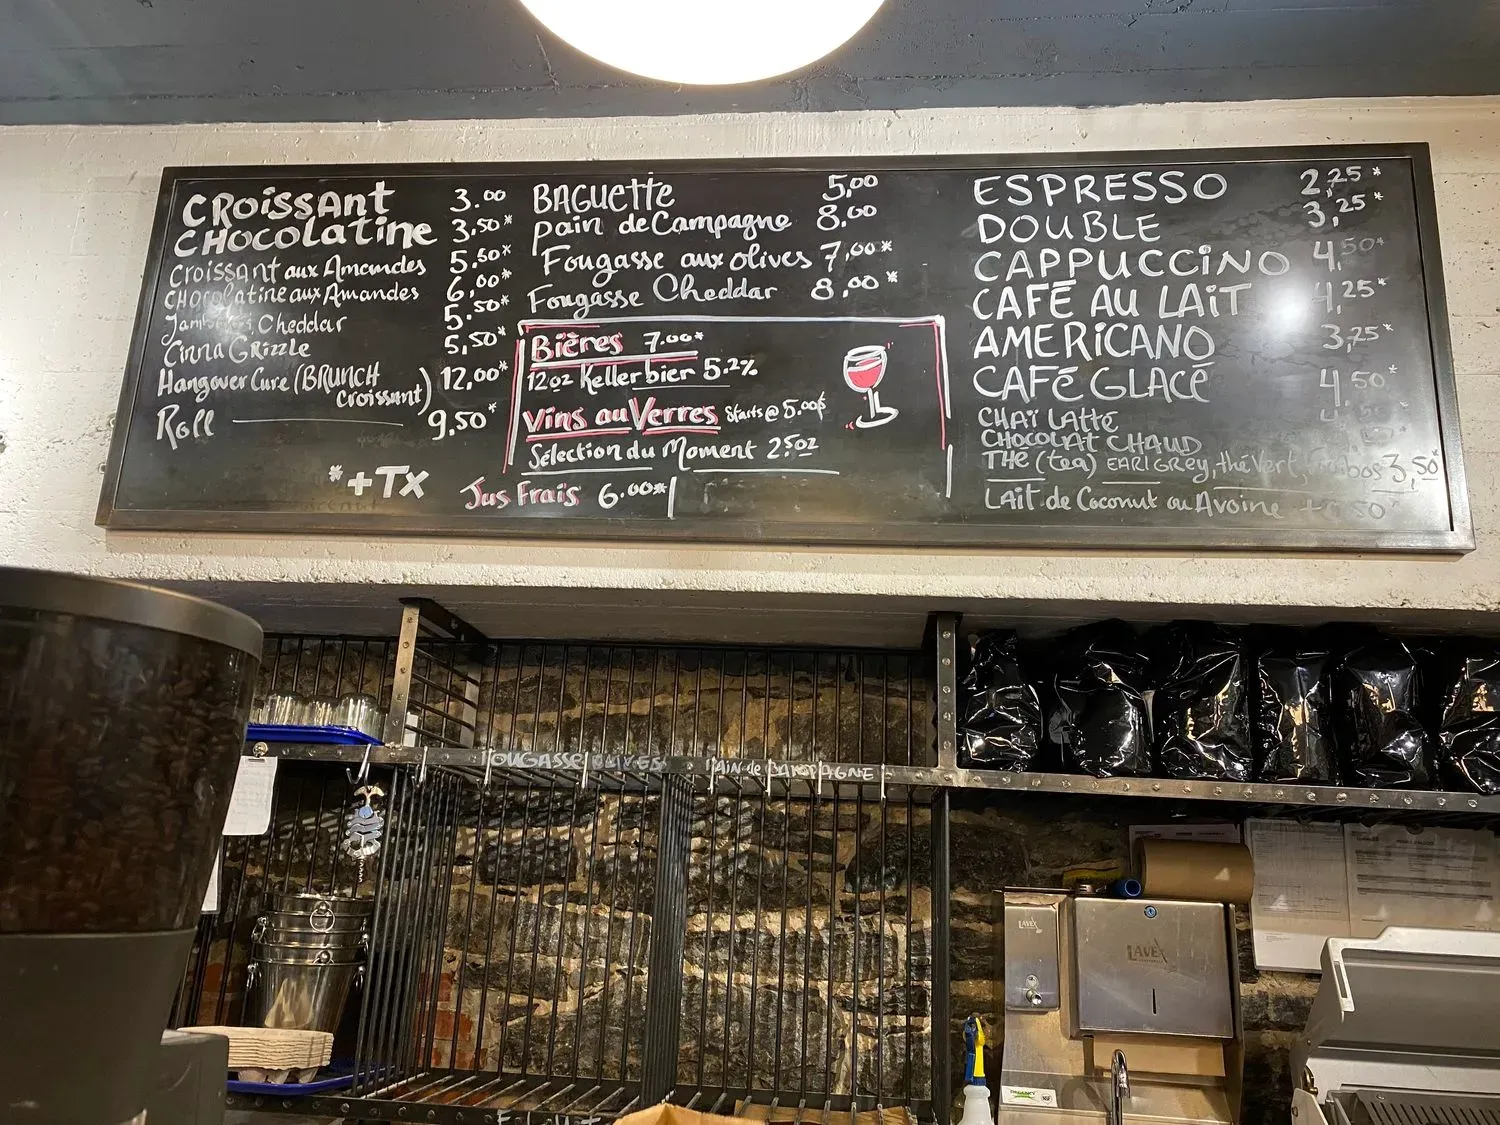 CROISSANT 3.00
CHOCOLATINE 3.50*
CROISSANT aux Amandes 5.50*
CHOCOLATINE aux Amandes 6,00*
Cheddar 5.50*
Cinna GRIZZLE 5,50*
Hangover Cure (BRUNCH croissant) 12,00*
Roll 9,50*
*+Tx
BAGUETTE 5,00
Pain de Campagne 8.00
Fougasse aux olives 7,00*
Fougasse Cheddar 8,00*
Bières 7.00*
12oz Kellerbier 5.2%
Vins au Verres Starts @ 5.00$
Sélection du Moment 2.5oz
Jus Frais 6.00*
ESPRESSO 2,25*
DOUBLE 3,25*
CAPPUCCINO 4,50*
CAFÉ AU LAIT 4,25*
AMERICANO 3,25*
CAFÉ GLACÉ 4.50*
CHAÏ LATTÉ
CHOCOLAT CHAUD
THÉ (tea) EARL GREY, thé Vert, 3,50*
LAIT de Coconut ou Avoine
FOUGASSE OLIVES
PAIN de CAMPAGNE
LAVEX
LAVEX